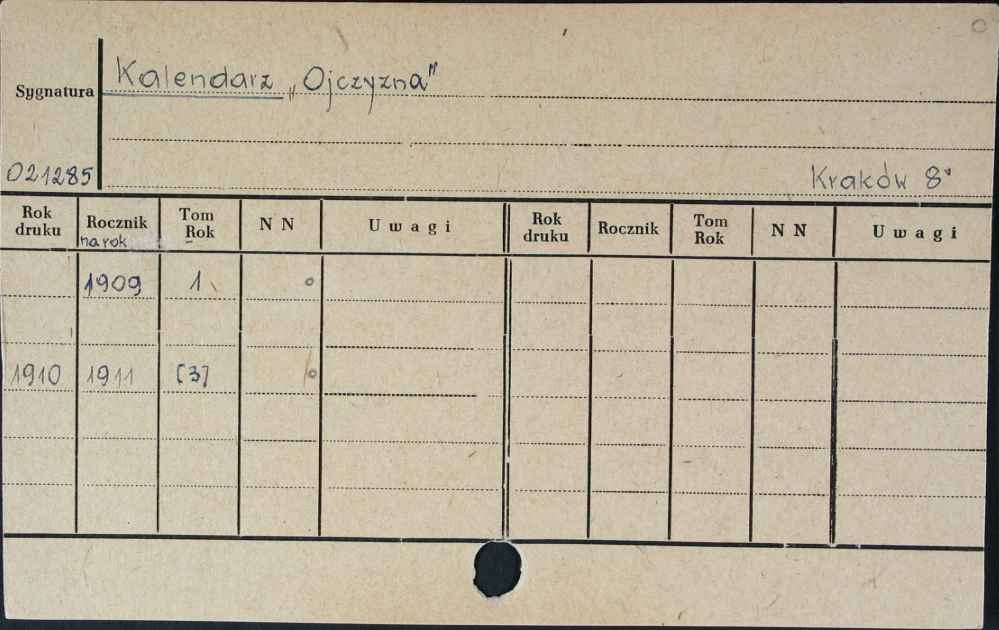 Kalendarz „Ojczyzna"
Sygnatura
021285 Kraków 8°
Rok druku Rocznik na rok Tom Rok N N Uwagi Rok druku Rocznik Tom Rok N N Uwagi
1909 1
1910 1911 [3]